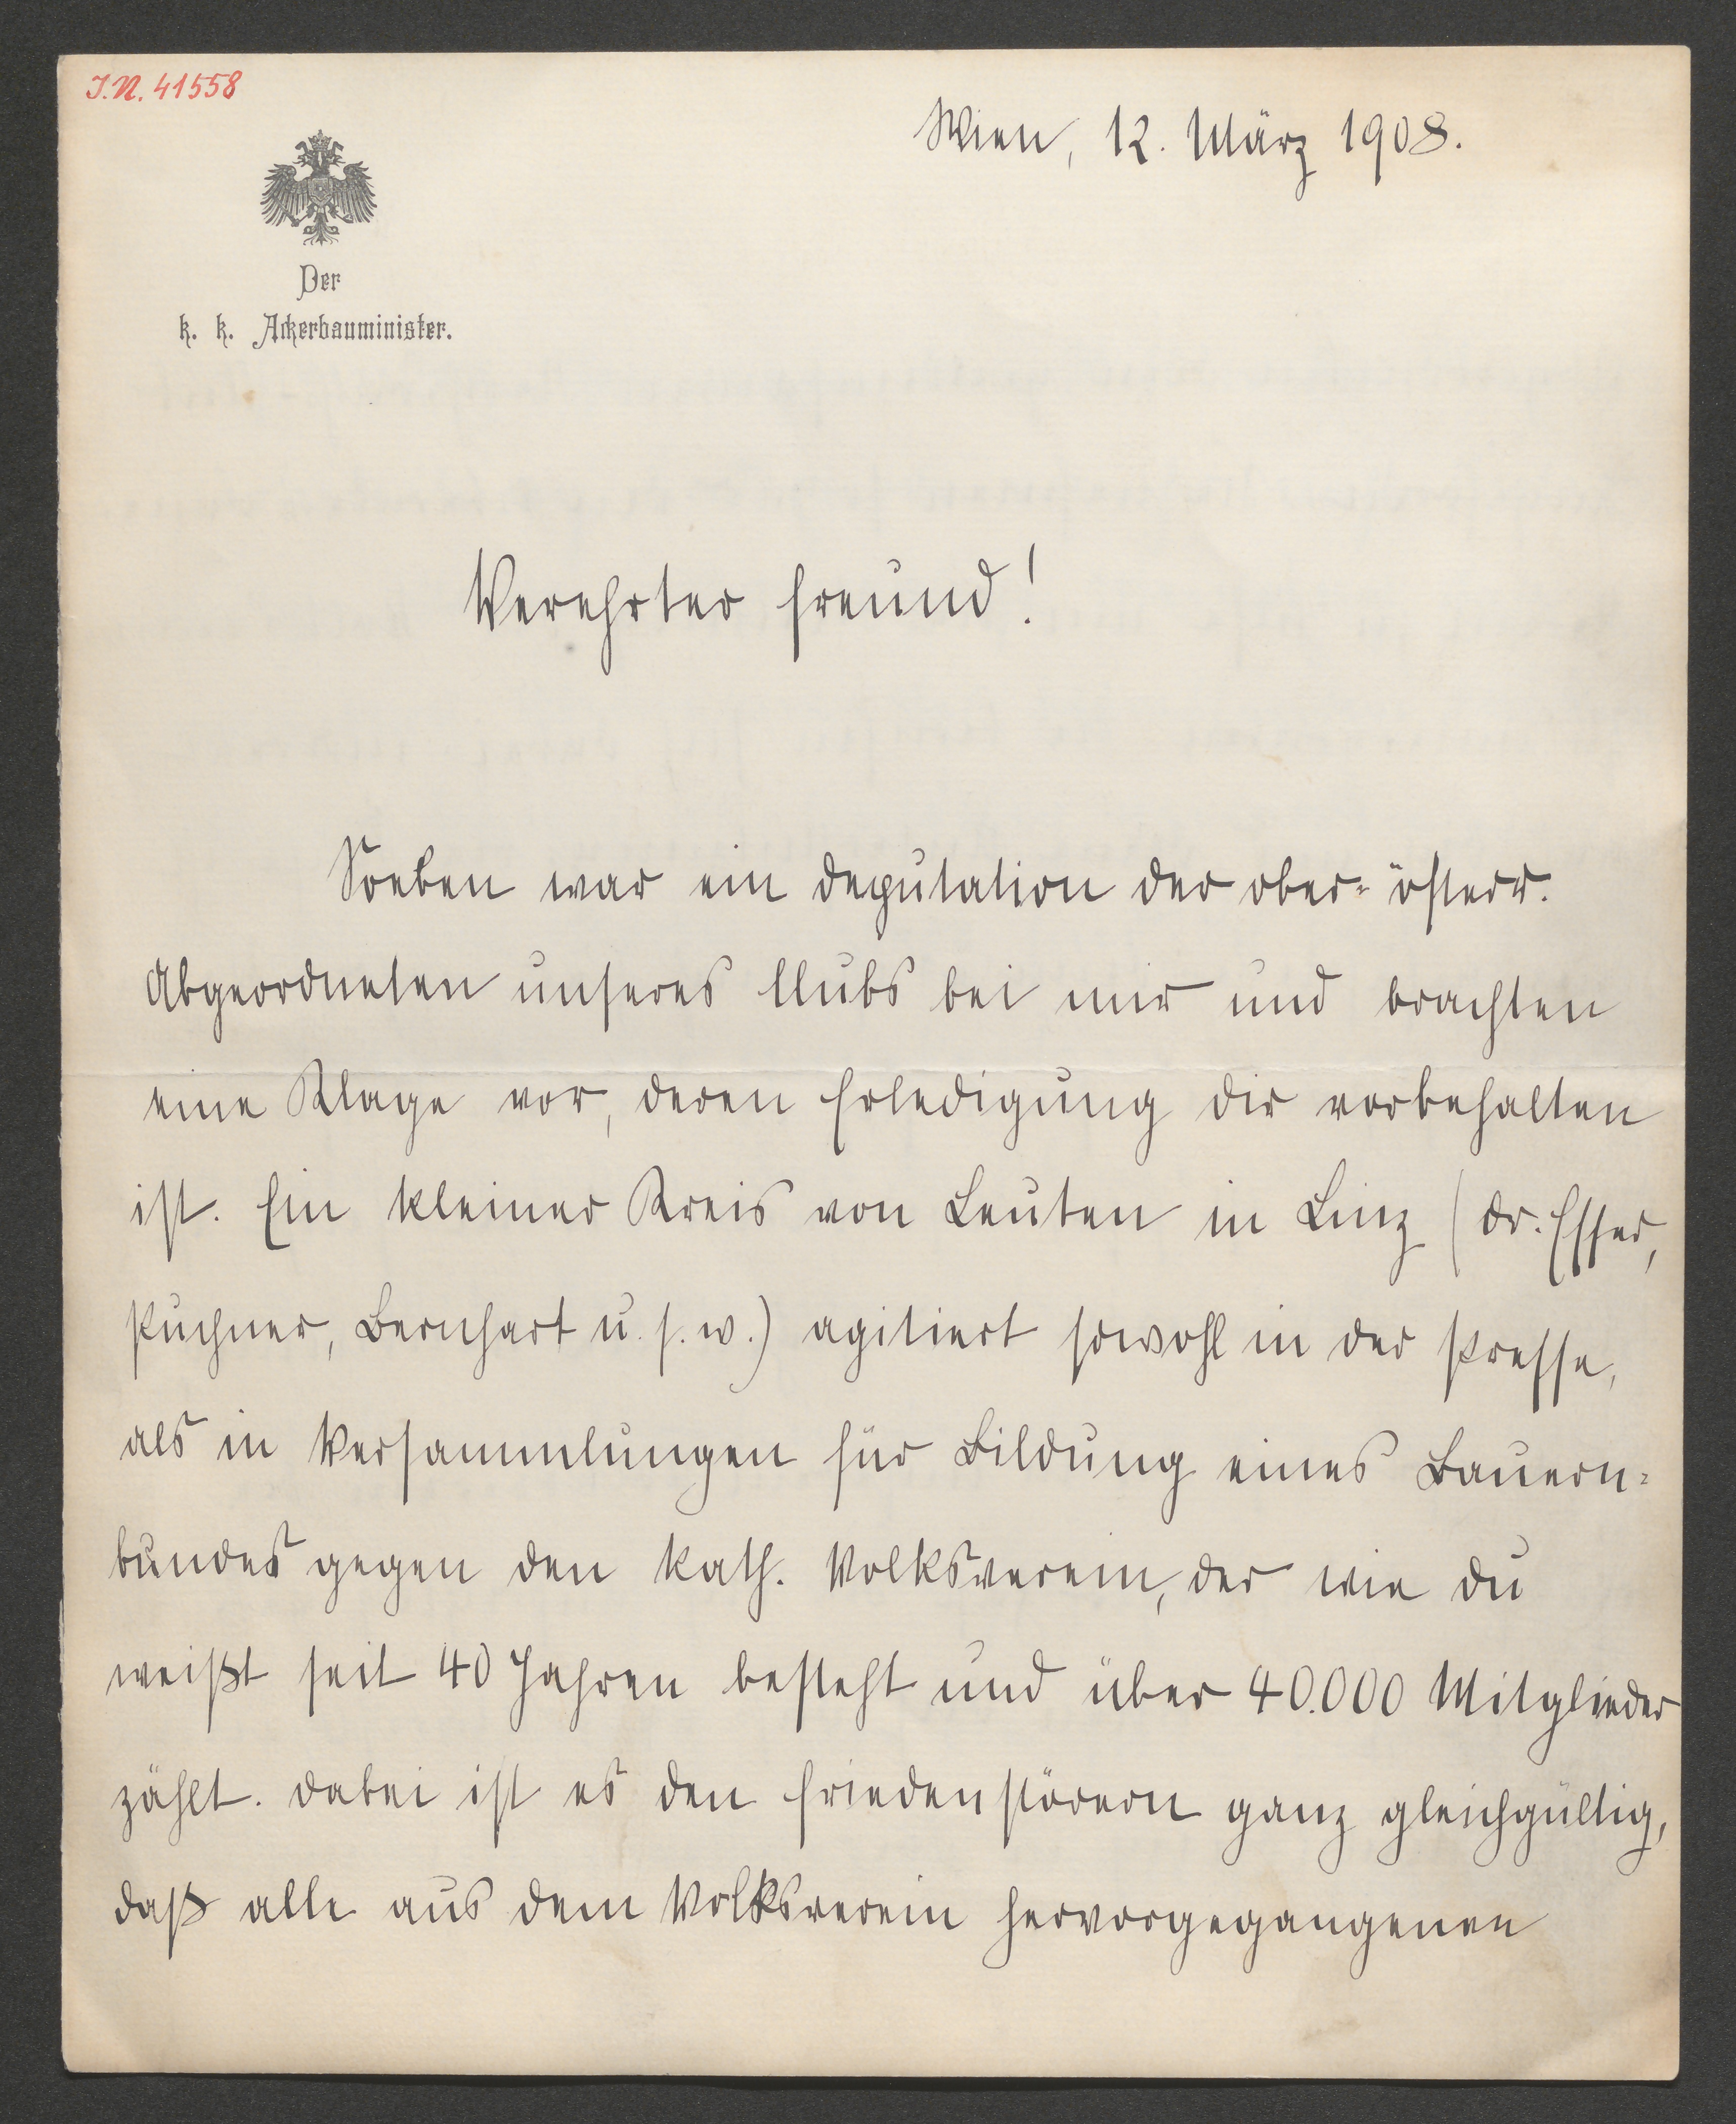 I.N. 41558
Wien, 12. März 1908.
Der
k. k. Ackerbauminister.
Verehrter Freund!
Soeben war ein Deputation der ober-österr.
Abgeordneten unseres Clubs bei mir und brachten
eine Klage vor, deren Erledigung dir vorbehalten
ist. Ein kleiner Kreis von Leuten in Linz (Dr. Esser,
Puchner, Bernhart u. s. w.) agitiert sowohl in der Presse,
als in Versammlungen für Bildung eines Bauern-
bundes gegen den kath. Volksverein, der wie du
weißt seit 40 Jahren besteht und über 40.000 Mitglieder
zählt. Dabei ist es den Friedenstörern ganz gleichgültig,
daß alle aus dem Volksverein hervorgegangenen